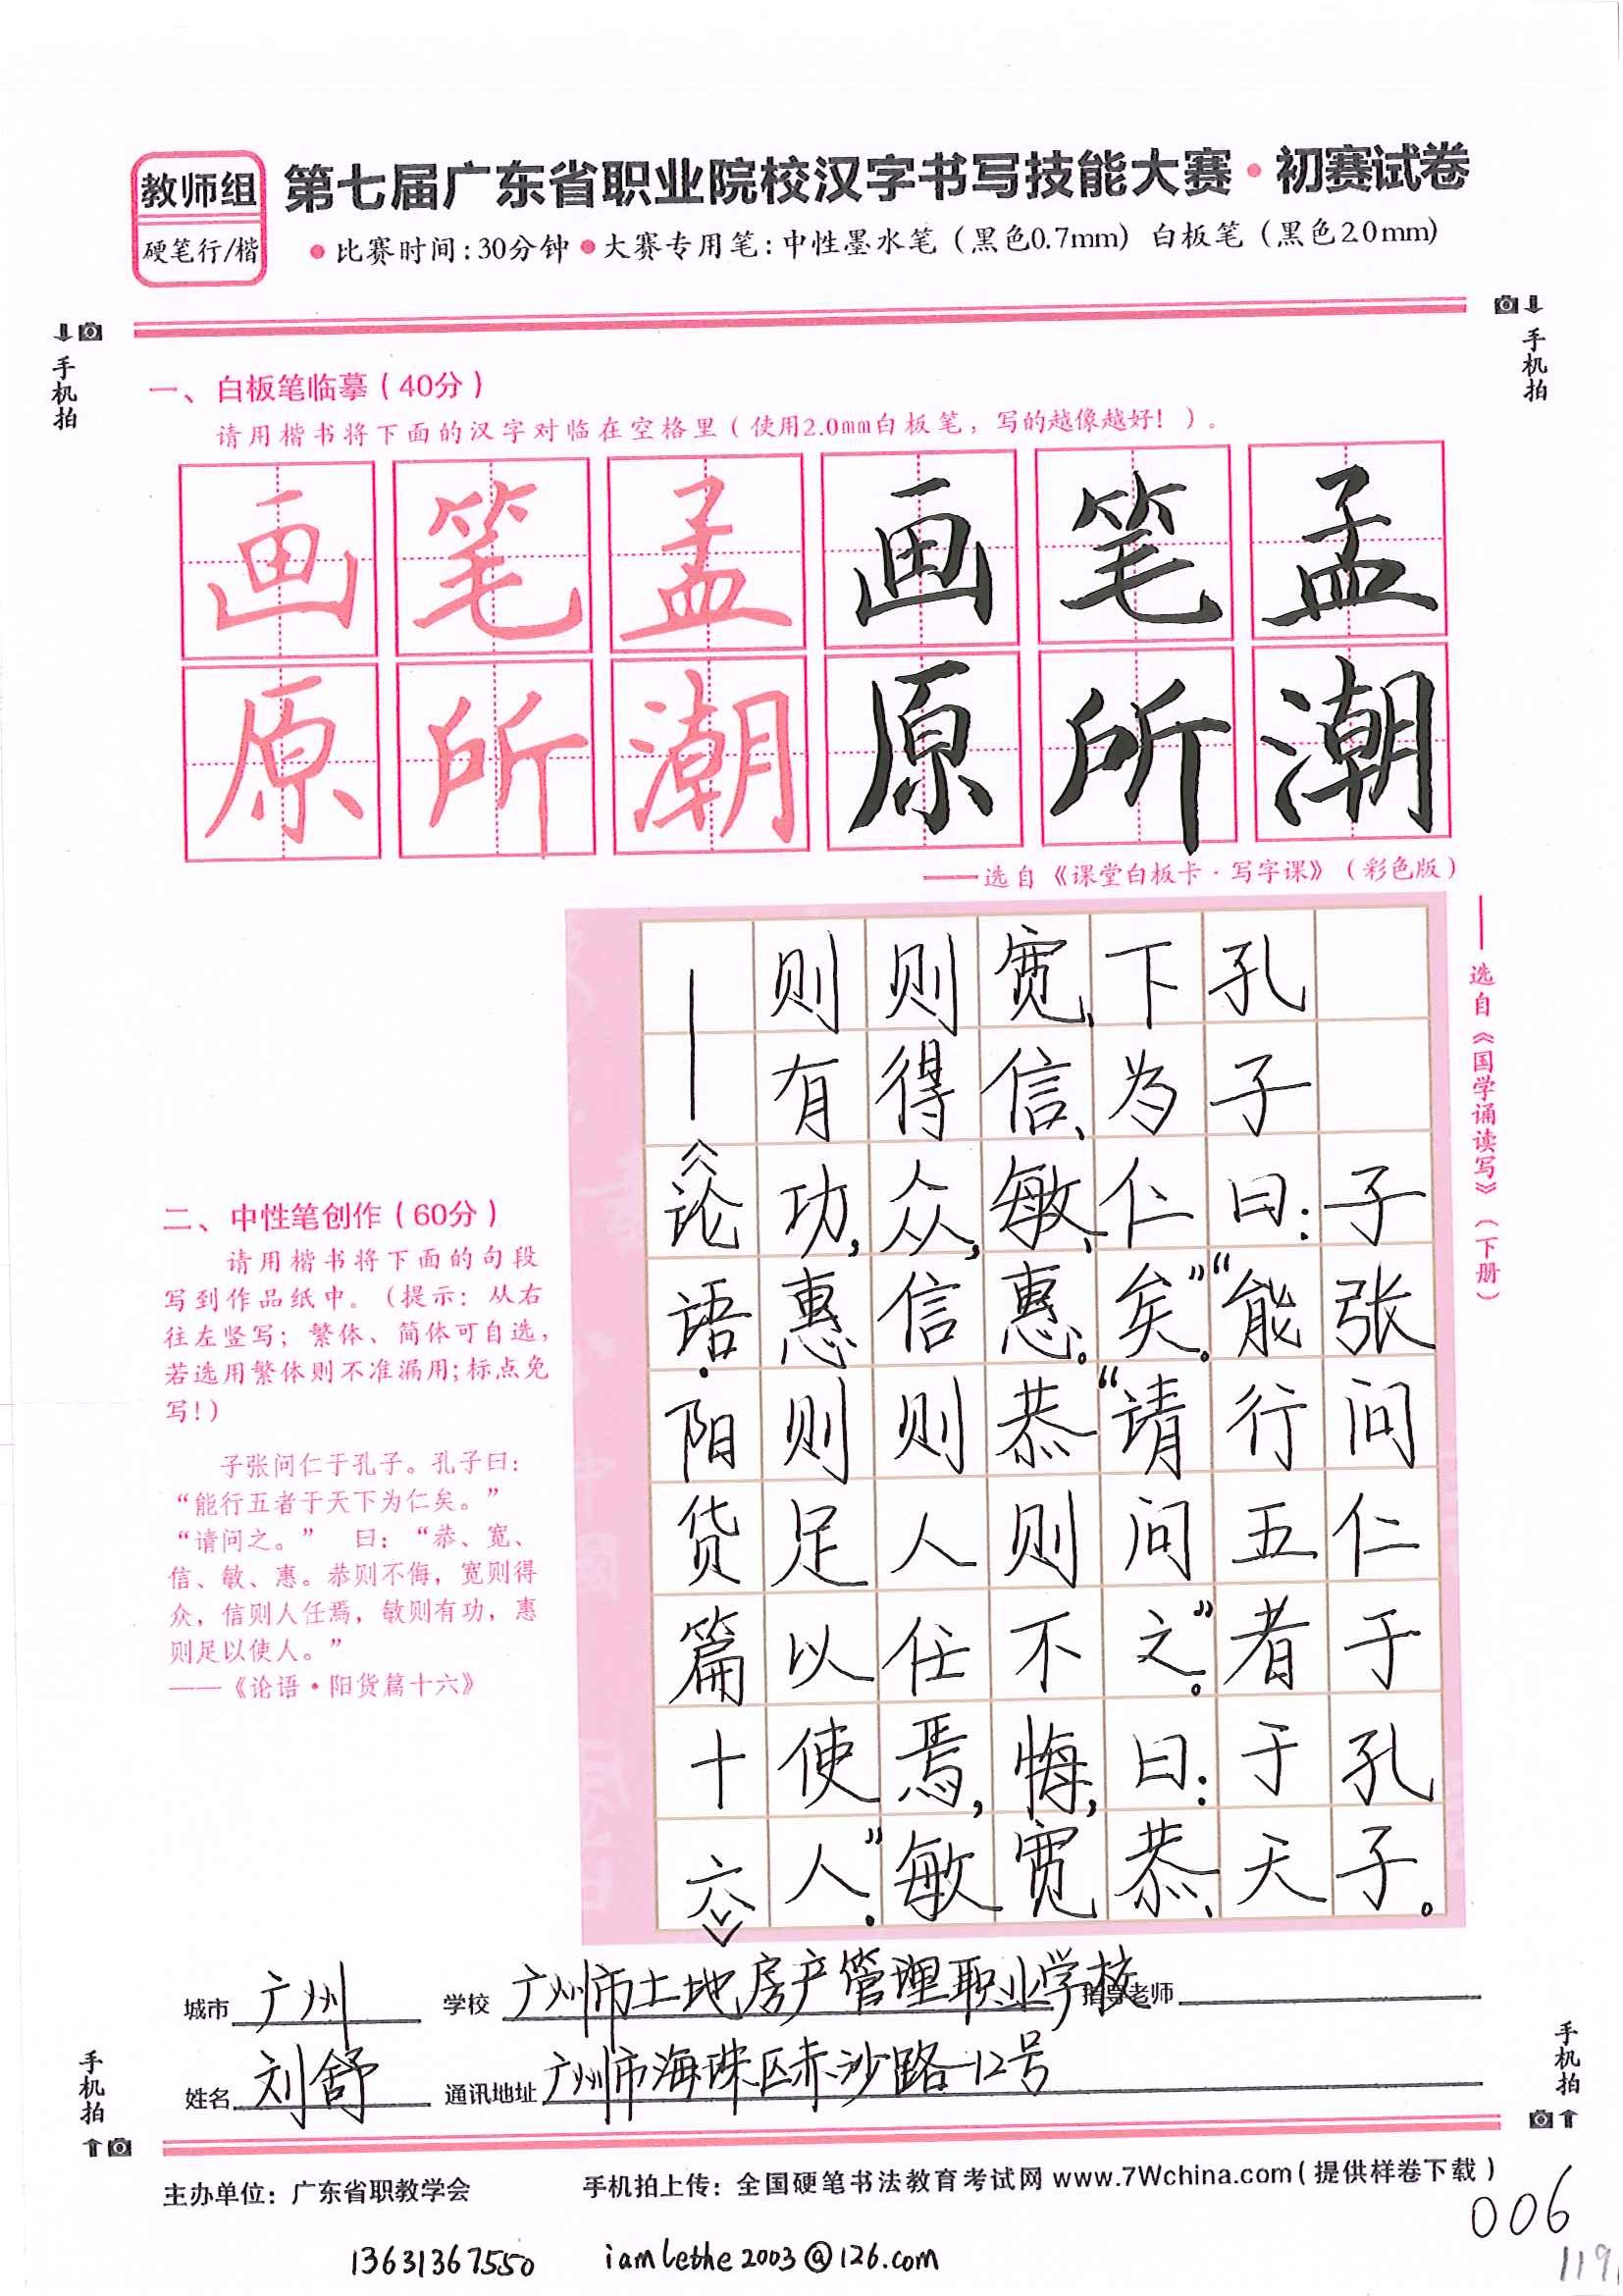 教师组
硬笔行/楷
第七届广东省职业院校汉字书写技能大赛·初赛试卷
●比赛时间:30分钟●大赛专用笔:中性墨水笔(黑色0.7mm) 白板笔(黑色2.0mm)
手机拍
手机拍
一、白板笔临摹(40分)
请用楷书将下面的汉字对临在空格里(使用2.0mm白板笔,写的越像越好!)。
画笔孟画笔孟
原所潮原所潮
——选自《课堂白板卡·写字课》(彩色版)
——选自《国学诵读写》(下册)
子张问仁于孔子。
孔子曰:“能行五者于天
下为仁矣。”“请问之。”曰:恭、
宽、信、敏、惠。恭则不悔,宽
则得众,信则人任焉,敏
则有功,惠则足以使人。”
——《论语·阳货篇十六》
二、中性笔创作(60分)
请用楷书将下面的句段
写到作品纸中。(提示:从右
往左竖写;繁体、简体可自选,
若选用繁体则不准漏用;标点免
写!)
子张问仁于孔子。孔子曰:
“能行五者于天下为仁矣。”
“请问之。” 曰:“恭、宽、
信、敏、惠。恭则不侮,宽则得
众,信则人任焉,敏则有功,惠
则足以使人。”
——《论语·阳货篇十六》
城市 广州 学校 广州市土地房产管理职业学校 指导老师
姓名 刘舒 通讯地址 广州市海珠区赤沙路一12号
手机拍
手机拍
主办单位:广东省职教学会 手机拍上传:全国硬笔书法教育考试网 www.7Wchina.com(提供样卷下载)
006
13631367550 iamlethe2003@126.com
119